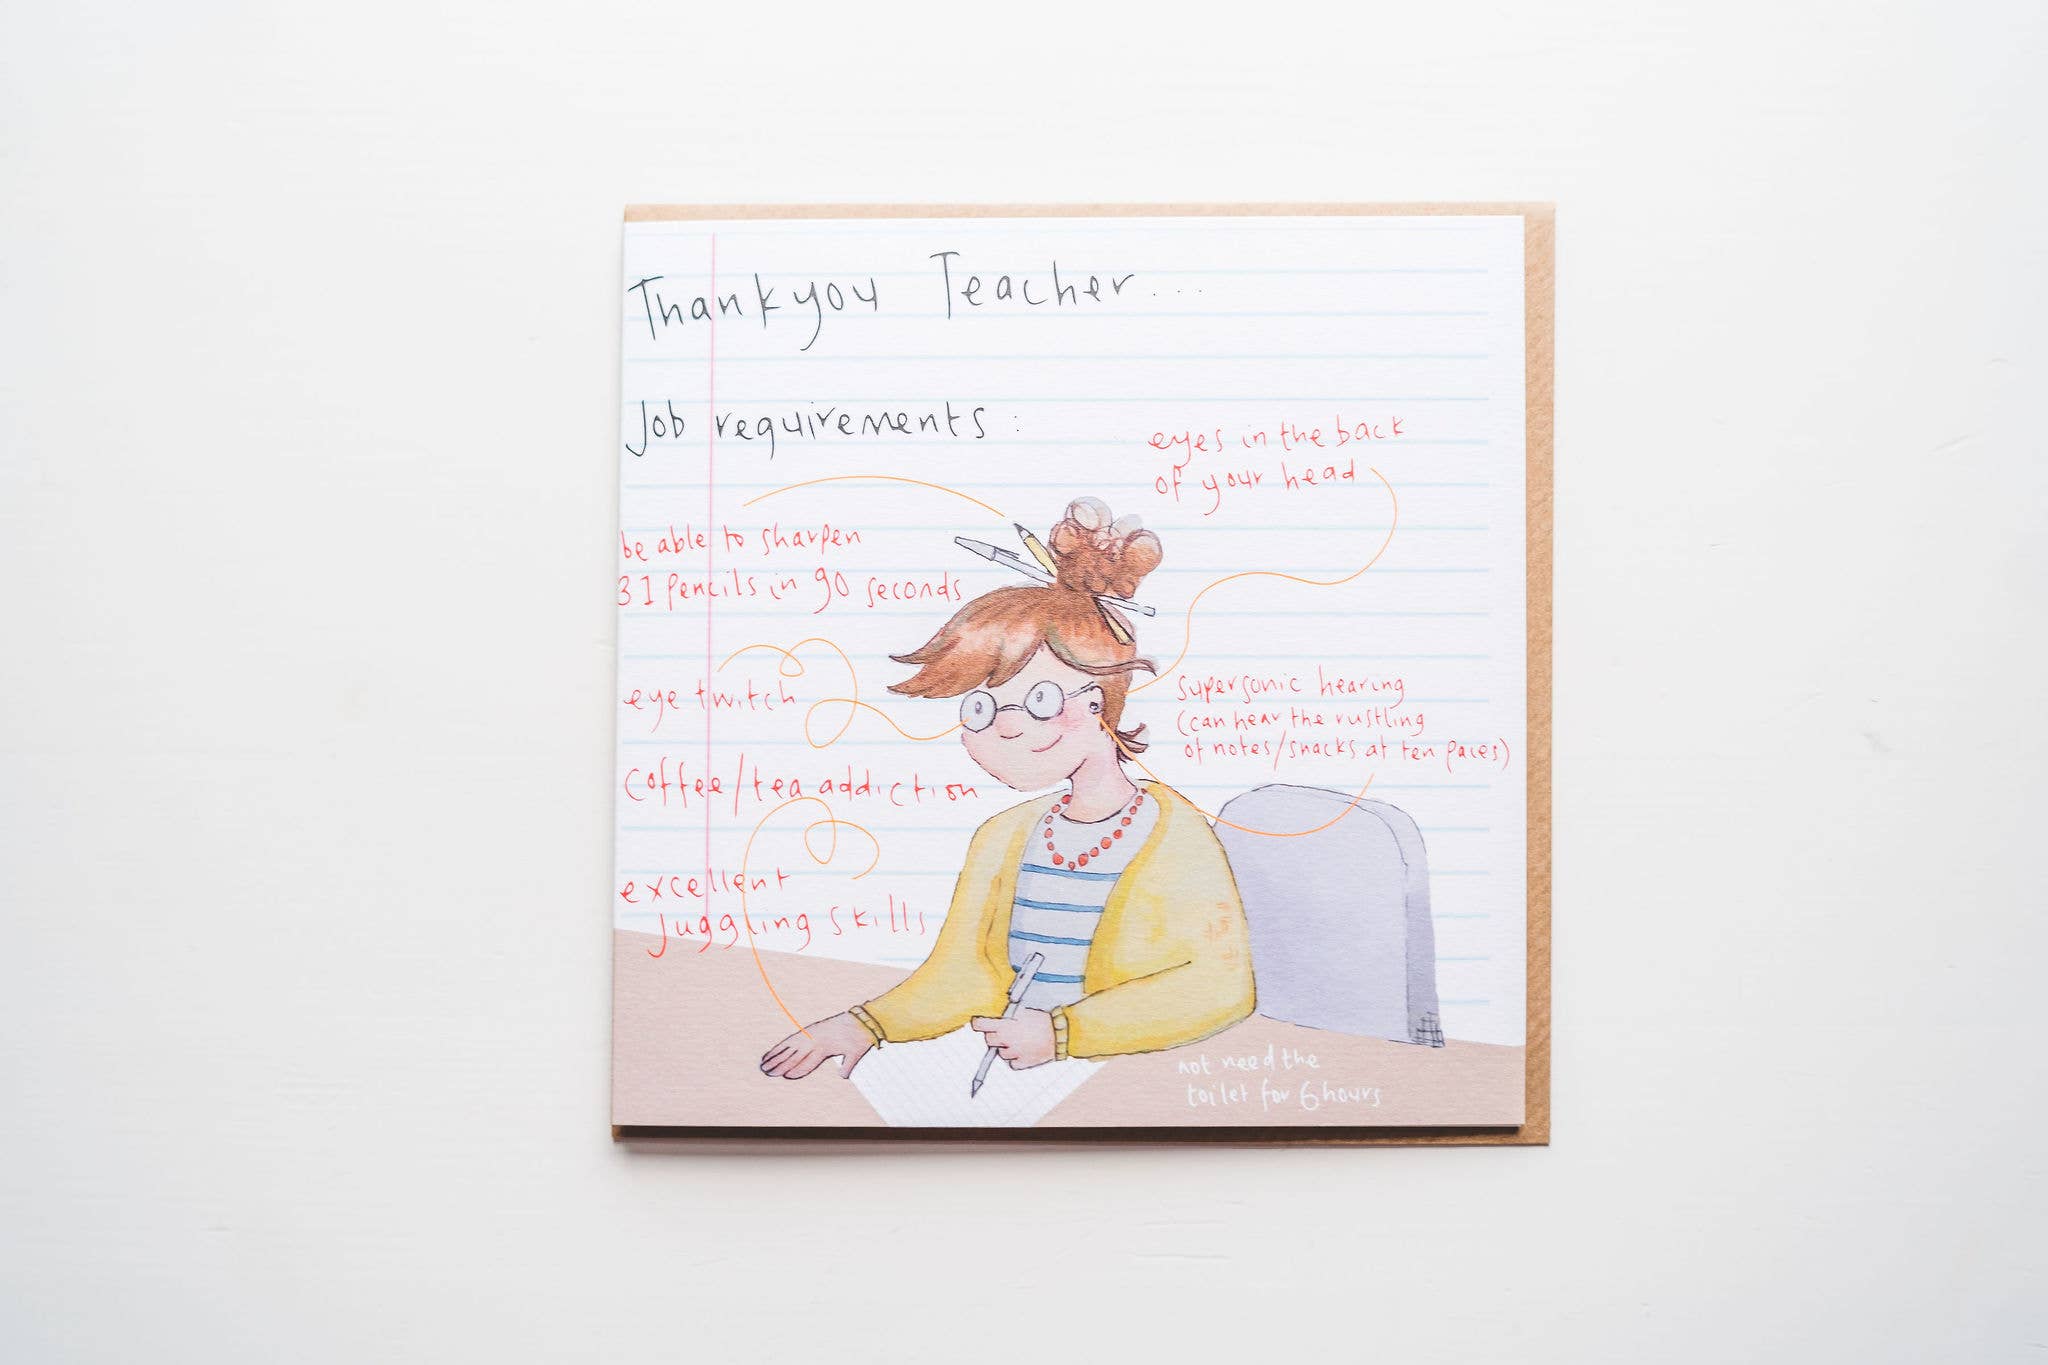 Thankyou Teacher...
Job requirements:
eyes in the back
of your head
be able to sharpen
31 pencils in 90 seconds
eye twitch
supersonic hearing
(can hear the rustling
of notes/snacks at ten paces)
coffee/tea addiction
excellent
juggling skills
not need the
toilet for 6 hours